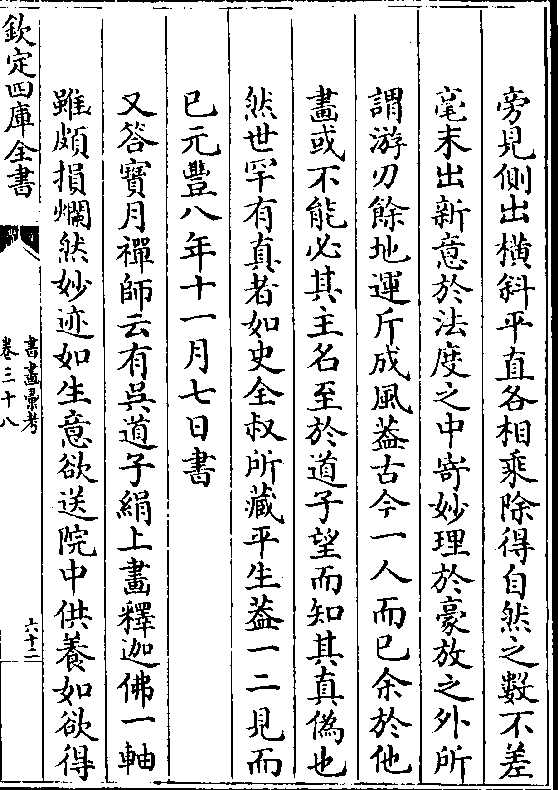 旁見側出橫斜平直各相乘除得自然之數不差
毫末出新意於法度之中寄妙理於豪放之外所
謂游刃餘地運斤成風葢古今一人而已余於他
畫或不能必其主名至於道子望而知其真偽也
然世罕有真者如史全叔所藏平生葢一二見而
已元豐八年十一月七日書
又答寶月禪師云有吳道子絹上畫釋迦佛一軸
雖頗損爛然妙迹如生意欲送院中供養如欲得
欽定四庫全書
書畫彚考
卷三十八
六十二